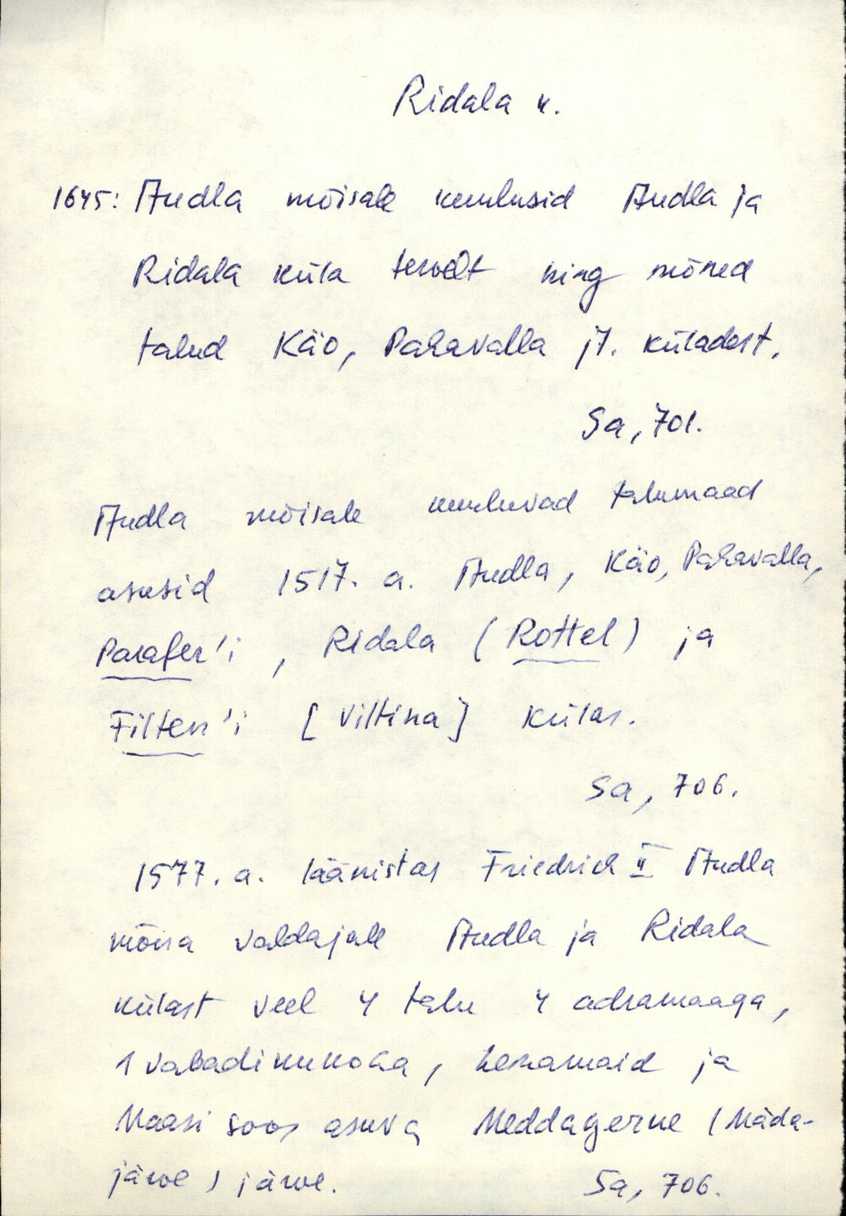 Ridala k.
1645: Audla mõisale kuulusid Audla ja
Ridala küla tervelt ning mõned
talud Käo, Pahavalla jt. küladest.
Sa, 701.
Audla mõisale kuuluvad talumaad
asusid 1517. a. Audla, Käo, Pahavalla,
Parafer'i, Ridala (Rottel) ja
Filten'i [Viltina] külas.
Sa, 706.
1577. a. läänistas Friedrich II Audla
mõisa valdajale Audla ja Ridala
külast veel 4 talu 4 adramaaga,
1 vabadikukoha, heinamaid ja
Maasi soos asuva Meddagerne (Mäda-
järve) järve. Sa, 706.